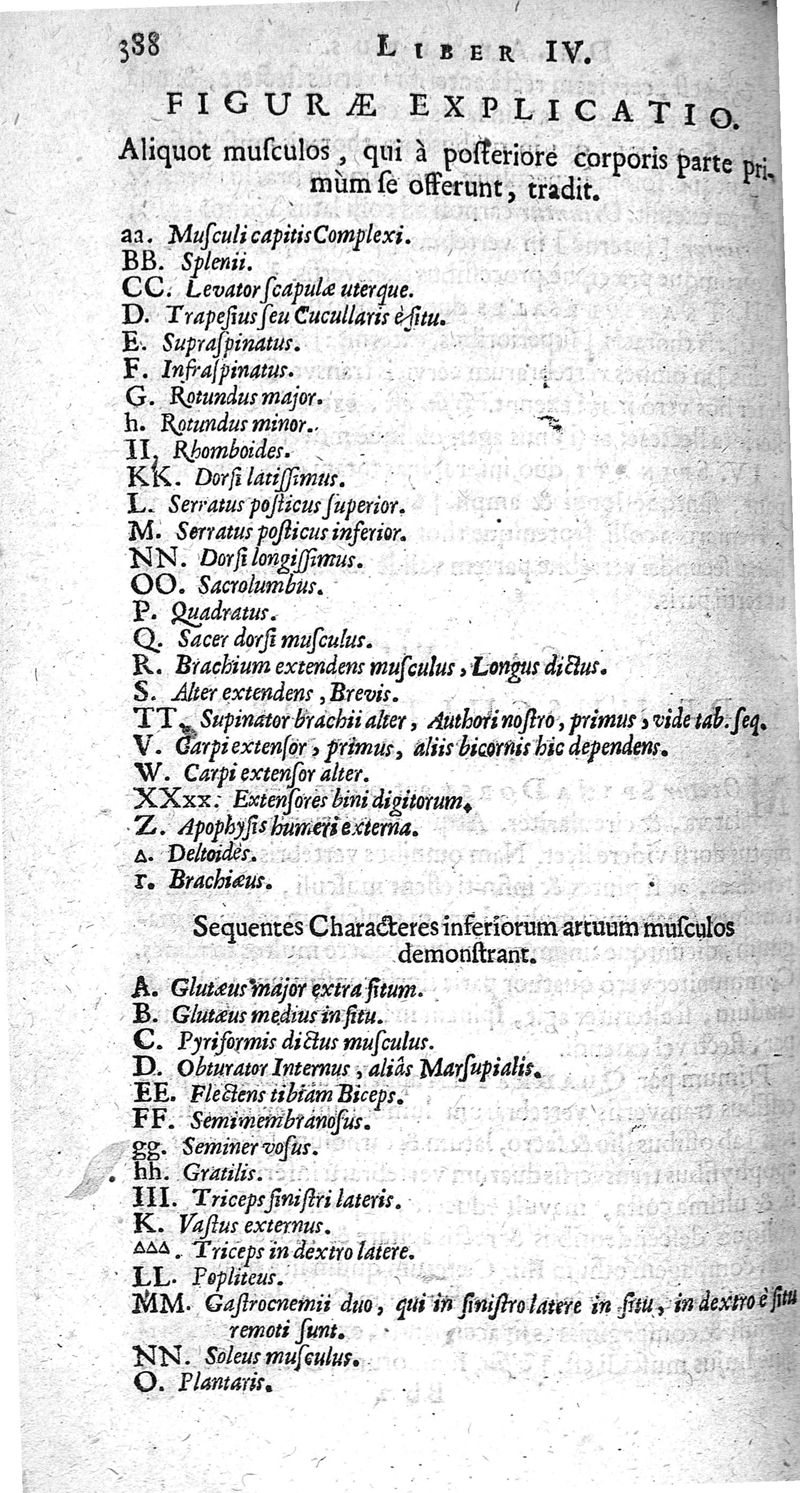 388 LIBER IV.
FIGURÆ EXPLICATIO.
Aliquot muſculos, qui à poſteriore corporis parte pri-
mùm ſe offerunt, tradit.
aa. Muſculi capitis Complexi.
BB. Splenii.
CC. Levator ſcapulæ uterque.
D. Trapeſius ſeu Cucullaris è ſitu.
E. Supraſpinatus.
F. Infraſpinatus.
G. Rotundus major.
h. Rotundus minor.
II. Rhomboides.
KK. Dorſi latiſſimus.
L. Serratus poſticus ſuperior.
M. Serratus poſticus inferior.
NN. Dorſi longiſſimus.
OO. Sacrolumbus.
P. Quadratus.
Q. Sacer dorſi muſculus.
R. Brachium extendens muſculus, Longus dictus.
S. Alter extendens, Brevis.
TT. Supinator brachii alter, Authori noſtro, primus, vide tab. ſeq.
V. Carpi extenſor, primus, aliis bicornis hic dependens.
W. Carpi extenſor alter.
XXxx. Extenſores bini digitorum.
Z. Apophyſis humeri externa.
Δ. Deltoides.
Γ. Brachiæus.
Sequentes Characteres inferiorum artuum muſculos
demonſtrant.
A. Glutæus major extra ſitum.
B. Glutæus medius in ſitu.
C. Pyriformis dictus muſculus.
D. Obturator Internus, aliâs Marſupialis.
EE. Flectens tibiam Biceps.
FF. Semimembranoſus.
gg. Seminervoſus.
hh. Gratilis.
III. Triceps ſiniſtri lateris.
K. Vaſtus externus.
ΔΔΔ. Triceps in dextro latere.
LL. Popliteus.
MM. Gaſtrocnemii duo, qui in ſiniſtro latere in ſitu, in dextro è ſitu
remoti ſunt.
NN. Soleus muſculus.
O. Plantaris.